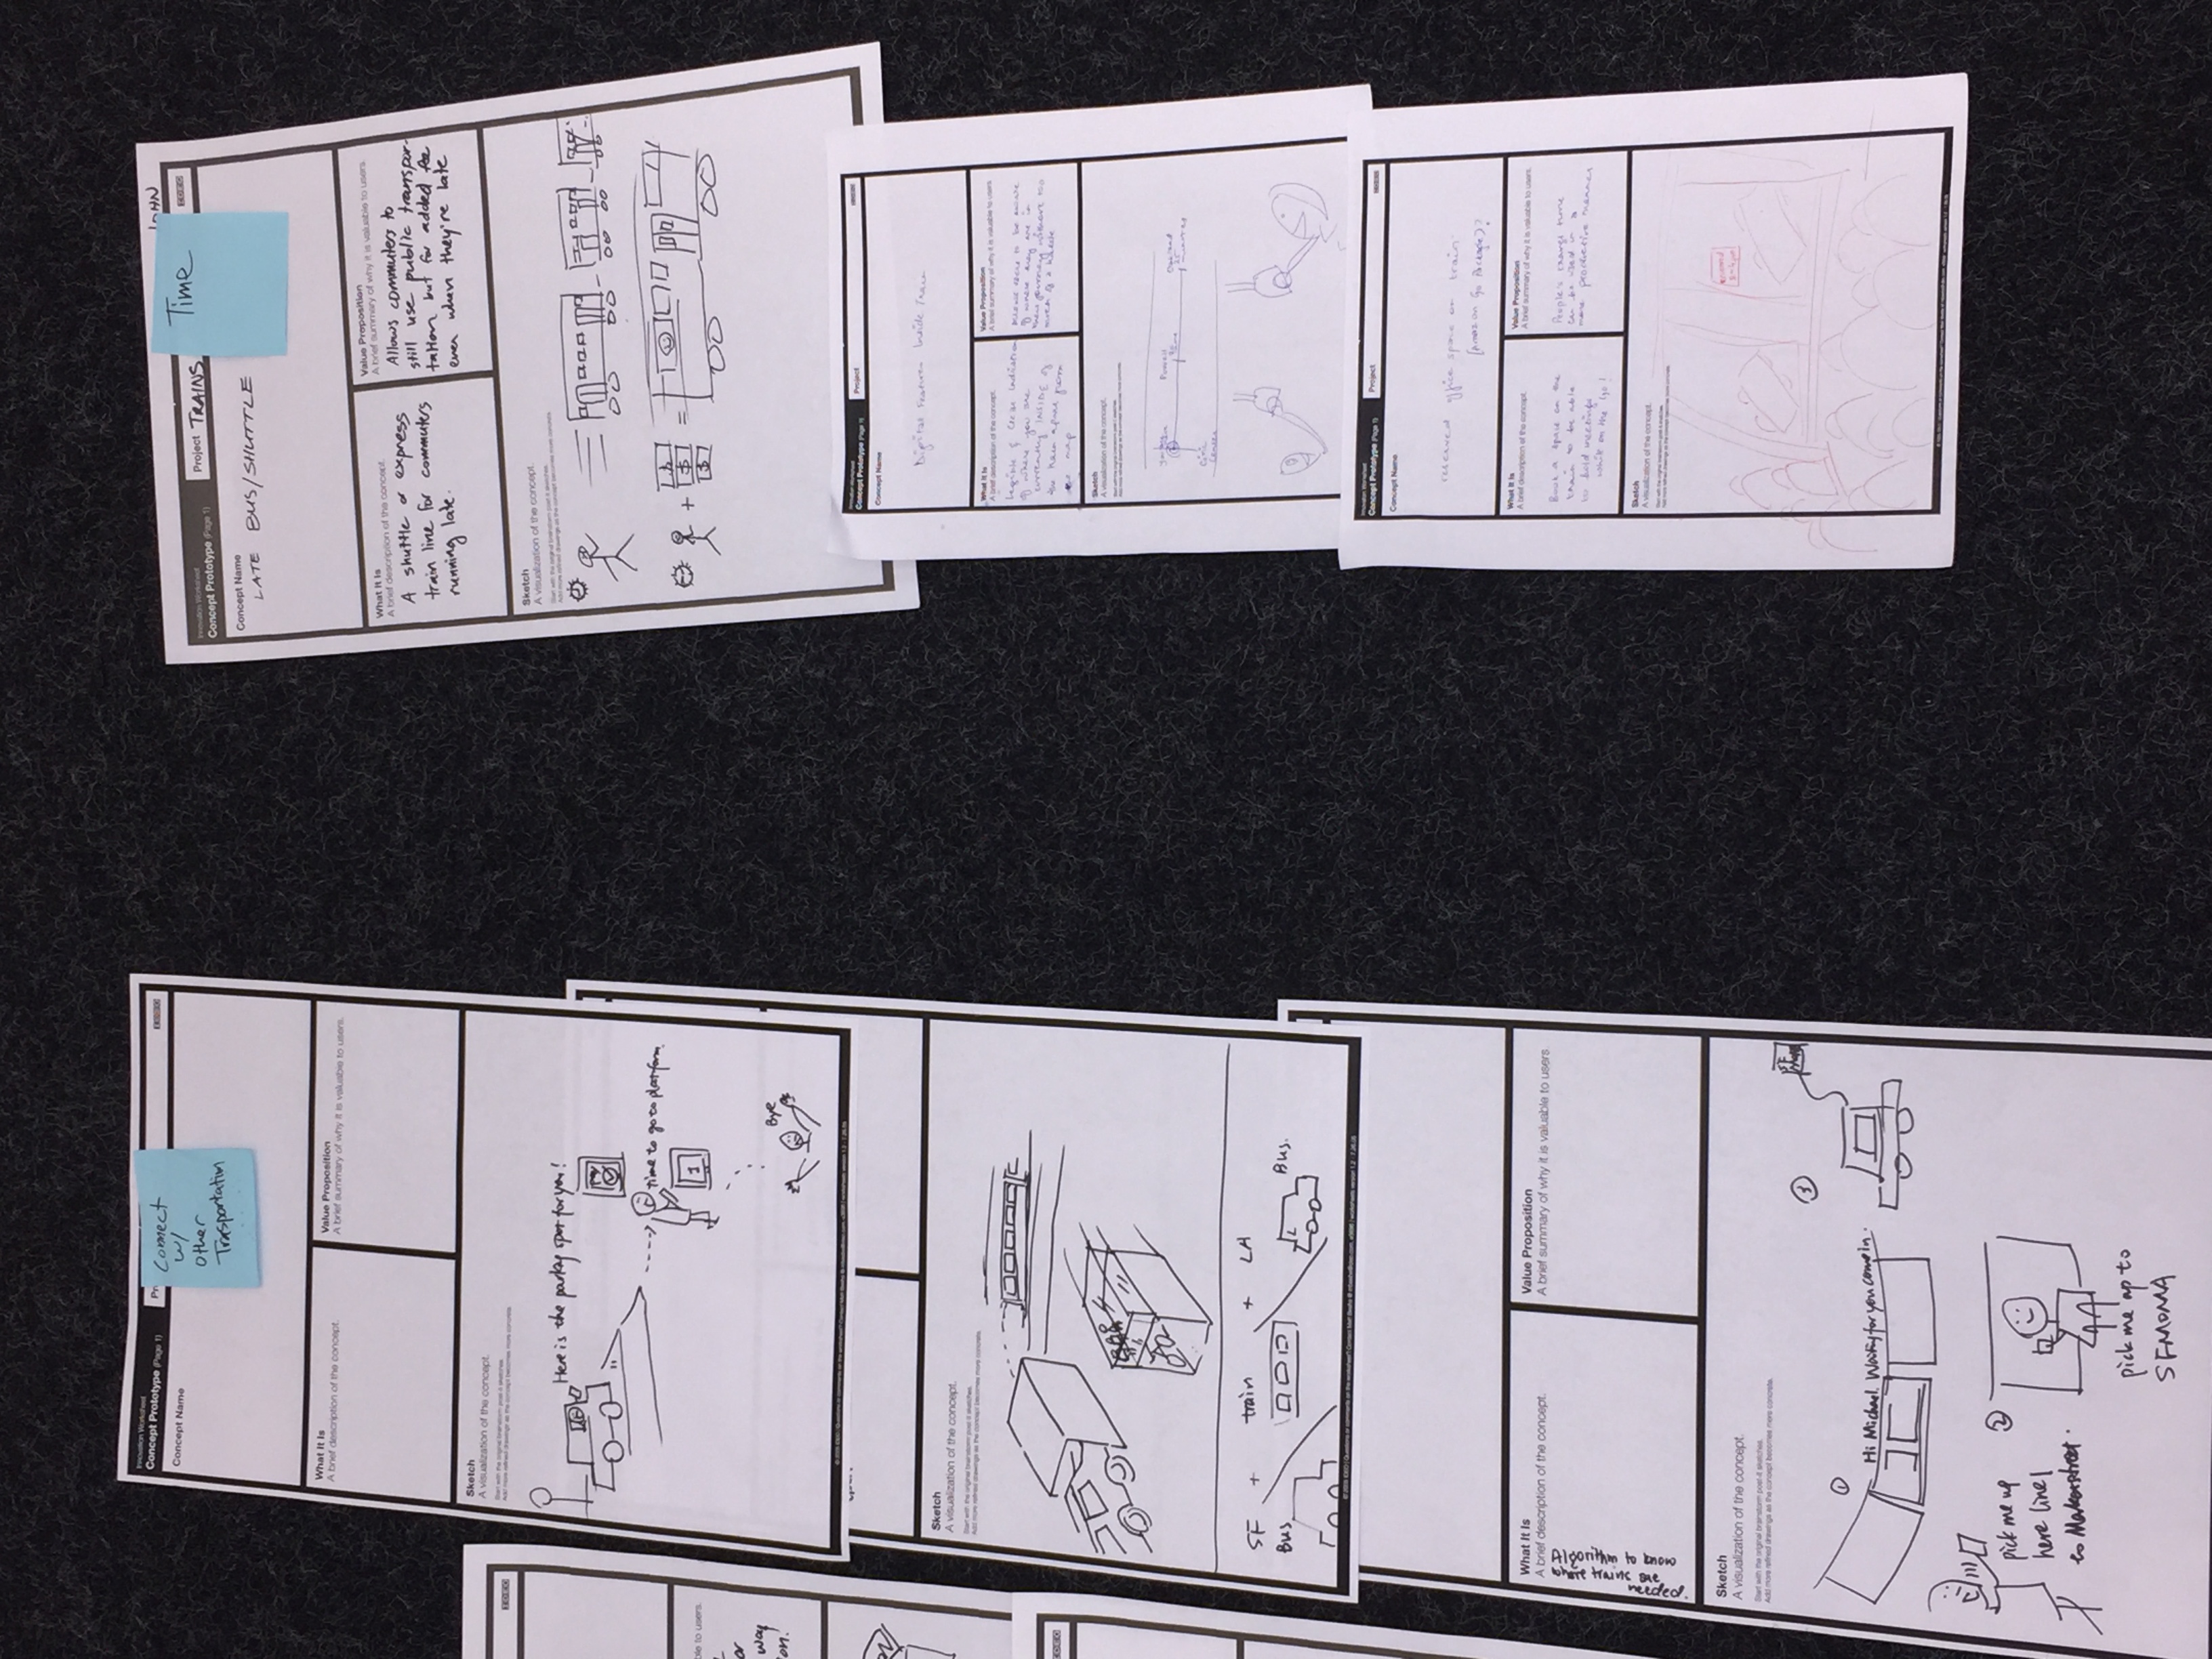 Innovation Worksheet
Concept Prototype (Page 1)
Pr
IDEO
Connect
w/
other
Trasportation
Concept Name
What It Is
A brief description of the concept.
Value Proposition
A brief summary of why it is valuable to users.
Sketch
A visualization of the concept.
Start with the original brainstorm post-it sketches.
Add more refined drawings as the concept becomes more concrete.
Here is the parking spot for you!
time to go to platform.
1
Bye
Sketch
A visualization of the concept.
Start with the original brainstorm post-it sketches.
Add more refined drawings as the concept becomes more concrete.
SF + train + LA
Bus Bus.
What It Is
A brief description of the concept.
Value Proposition
A brief summary of why it is valuable to users.
Algorithm to know
where trains are
needed.
Sketch
A visualization of the concept.
Start with the original brainstorm post-it sketches.
Add more refined drawings as the concept becomes more concrete.
1
Hi Michael. Waiting for you come in.
3
pick me up
here line 1
to Marketstreet.
2
pick me up to
SFMOMA
IDEO
ble to users.
or
way
on!
IDEO
JOHN
Innovation Worksheet
Concept Prototype (Page 1)
Project TRAINS
Time
IDEO
Concept Name
LATE BUS/SHUTTLE
What It Is
A brief description of the concept.
A shuttle or express
train line for commuters
running late.
Value Proposition
A brief summary of why it is valuable to users.
Allows commuters to
still use public transpor-
tation but for added fee
even when they're late
Sketch
A visualization of the concept.
Start with the original brainstorm post-it sketches.
Add more refined drawings as the concept becomes more concrete.
+ $ $ $ =
Innovation Worksheet
Concept Prototype (Page 1)
Project
Concept Name
Digital Features Inside Train
What It Is
A brief description of the concept.
of where you are
currently INSIDE of
the train apart from
map
Value Proposition
A brief summary of why it is valuable to users
to be aware
of where they are in
their journey without too
much of a hassle
Sketch
A visualization of the concept.
Start with the original brainstorm post-it sketches.
Add more refined drawings as the concept becomes more concrete.
Powell
Civic
Center
Innovation Worksheet
Concept Prototype (Page 1)
Project
Concept Name
reserved office space on train
(Amazon Go Package)?
What It Is
A brief description of the concept.
Book a space on the
train to be able
to hold meetings
while on the go!
Value Proposition
A brief summary of why it is valuable to users.
People's transit time
can be used in a
more productive manner
Sketch
A visualization of the concept.
Start with the original brainstorm post-it sketches.
Add more refined drawings as the concept becomes more concrete.